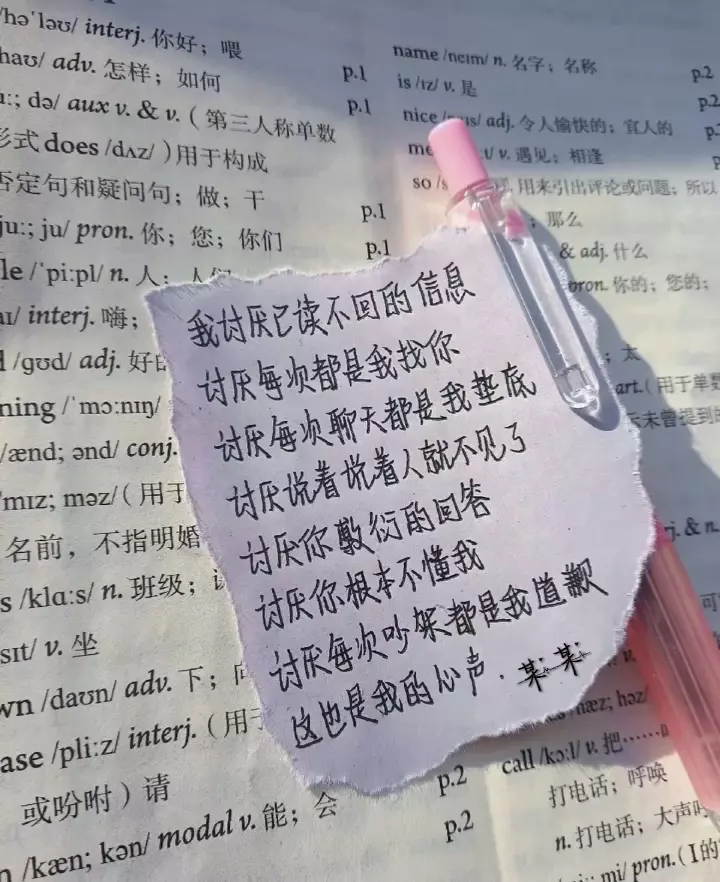 /həˈləʊ/ interj. 你好；喂
p.1
/haʊ/ adv. 怎样；如何
p.1
duː; də/ aux v. & v.（第三人称单数
形式 does /dʌz/ ）用于构成
否定句和疑问句；做；干
p.1
juː; ju/ pron. 你；您；你们
p.1
/ˈpiːpl/ n. 人；人们
interj. 嗨；
/ɡʊd/ adj. 好的
ning /ˈmɔːnɪŋ/
/ænd; ənd/ conj.
mɪz; məz/（用于
名前，不指明婚
s /klɑːs/ n. 班级；
sɪt/ v. 坐
wn /daʊn/ adv. 下；向
ase /pliːz/ interj.（用于
或吩咐）请
p.2
n /kæn; kən/ modal v. 能；会
p.2
name /neɪm/ n. 名字；名称
p.2
is /ɪz/ v. 是
p.2
nice /naɪs/ adj. 令人愉快的；宜人的
v. 遇见；相逢
so 用来引出评论或问题；所以
那么
& adj. 什么
pron. 你的；您的；
太
art.（用于单数
未曾提到的
& n.
hæz; həz/
call /kɔːl/ v. 把……
打电话；呼唤
n. 打电话；大声
mi/ pron.（I的
我讨厌已读不回的信息
讨厌每次都是我找你
讨厌每次聊天都是我垫底
讨厌说着说着人就不见了
讨厌你敷衍的回答
讨厌你根本不懂我
讨厌每次吵架都是我道歉
这也是我的心声.某某